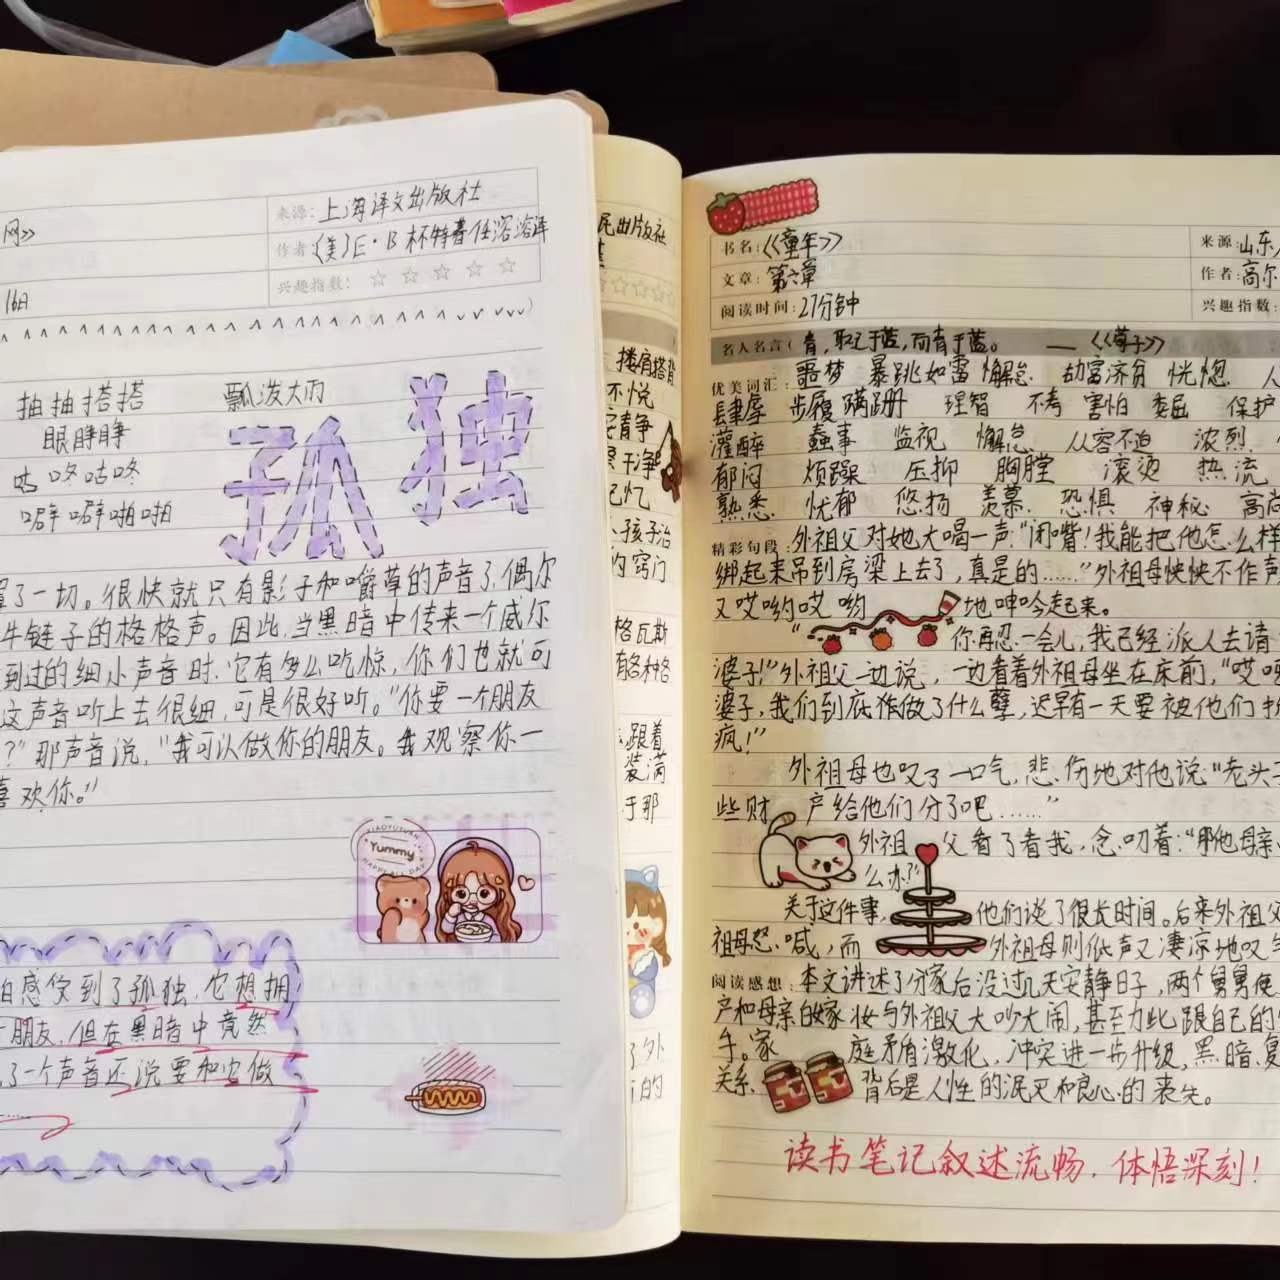 网》
来源：上海译文出版社
作者〈美〉E·B杯特著任溶溶译
兴趣指数：☆ ☆ ☆ ☆ ☆
16日
抽抽搭搭 瓢泼大雨
眼睁睁
咕咚咕咚
噼噼啪啪
孤独
了一切。很快就只有影子和嚼草的声音了，偶尔
牛链子的格格声。因此，当黑暗中传来一个威尔
到过的细小声音时，它有多么吃惊，你们也就可
这声音听上去很细，可是很好听。“你要一个朋友
？”那声音说，“我可以做你的朋友。我观察你一
喜欢你。”
XIAOYUYUAN
Yummy
HAPPY ALL DAY
感受到了孤独，它想拥
朋友，但在黑暗中竟然
了一个声音还说要和它做
……
民出版社
☆☆☆☆
搂肩搭背
不悦
安静
干净
记忆
小孩子治
的窍门
格瓦斯
有各种各
跟着
装满
于那
了外
的
书名：《童年》
来源：山东
文章：第六章
作者：高尔
阅读时间：27分钟
兴趣指数：
名人名言（青，取之于蓝，而青于蓝。 —《荀子》
优美词汇：噩梦 暴跳如雷 懈怠 劫富济贫 恍惚
肆辱 步履蹒跚 理智 不考 害怕 委屈 保护
灌醉 蠢事 监视 懈怠 从容不迫 浓烈
郁闷 烦躁 压抑 胸膛 滚烫 热流
熟悉 忧郁 悠扬 羡慕 恐惧 神秘 高尚
精彩句段：外祖父对她大喝一声：“闭嘴！我能把他怎么样
绑起来吊到房梁上去了，真是的……”外祖母怏怏不作声
又哎哟哎哟地呻吟起来。
“你再忍一会儿，我已经派人去请
婆子！”外祖父一边说，一边看着外祖母坐在床前，“哎呀
婆子，我们到底作做了什么孽，迟早有一天要被他们
疯！”
外祖母也叹了一口气，悲伤地对他说：“老头子
些财产给他们分了吧……”
外祖父看了看我，念叨着：“那他母亲
么办？”
关于这件事，他们谈了很长时间。后来外祖父
祖母怒喊，而外祖母则低声又凄凉地叹气
阅读感想：本文讲述了分家后没过几天安静日子，两个舅舅便
产和母亲的嫁妆与外祖父大吵大闹，甚至为此跟自己的
手。家庭矛盾激化，冲突进一步升级，黑暗、复
关系、背后是人性的泯灭和良心的丧失。
读书笔记叙述流畅，体悟深刻！